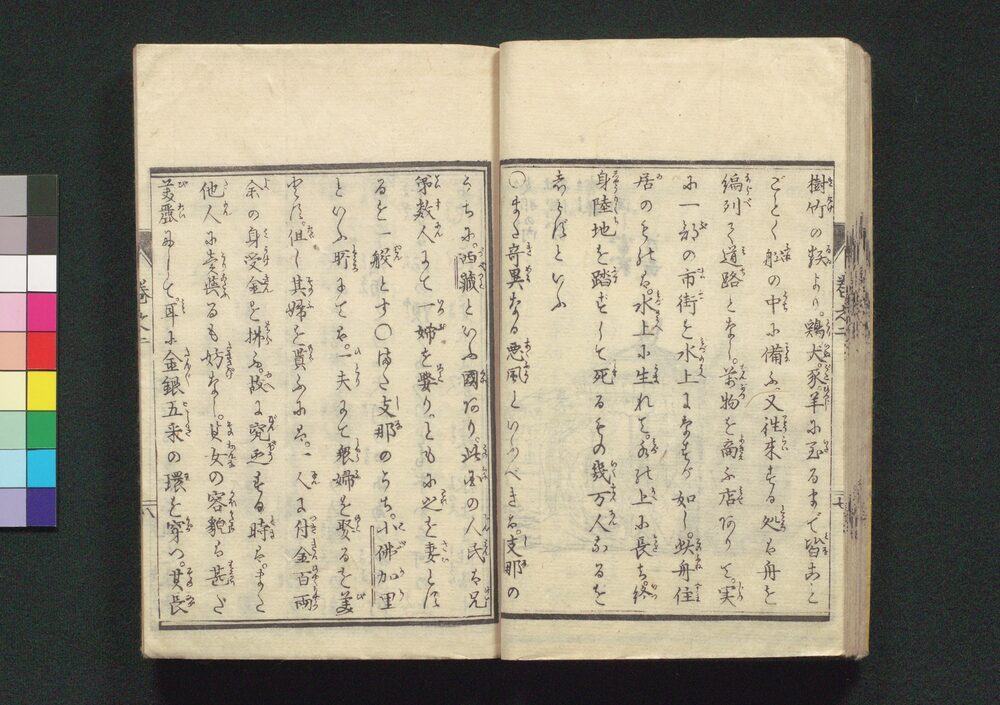 樹竹の類より。鶏犬。豕。羊に至るまで皆ことご
ごとく船の中に備ふ。又往来する処は舟を
編列て道路となし。万物を商ふ店ありて。実
に一部の市街を水上になすが如し。蜑舟住
居のものは。水上に生れて。水の上に長ち。終
身陸地を踏ずして死るもの幾万人なるを
しらずといふ
○また奇異なる悪風といふべきは支那の
うちに。西蔵といふ國あり。此国の人民は兄
弟数人にて一婦を娶り。ともに之を妻とす
るを一般とす○また支那のうち。小佛加里
といふ所にては。一夫にて数婦を娶るを美
とす。但し其婦を貰ふには。一人に付金百両
余の身受金を拂ふ。故に窮迫する時は。また
他人に賣與るも妨なし。其女の容貌は甚だ
美麗にして。耳に金銀五采の環を穿つ。其長
巻之二